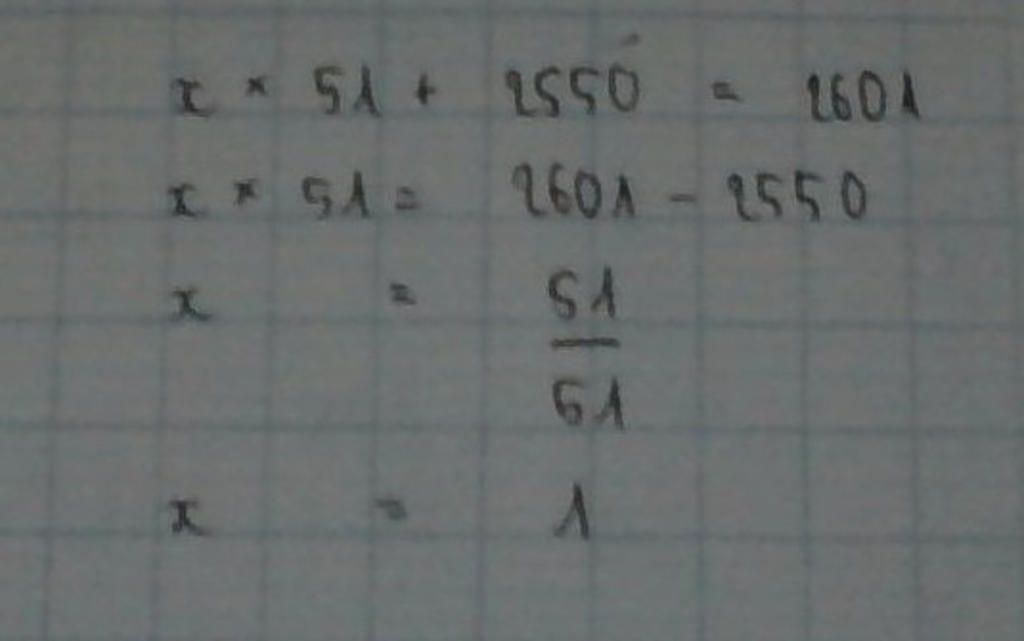 x × 51 + 2550 = 2601
x × 51 = 2601 - 2550
x = 51
51
x = 1